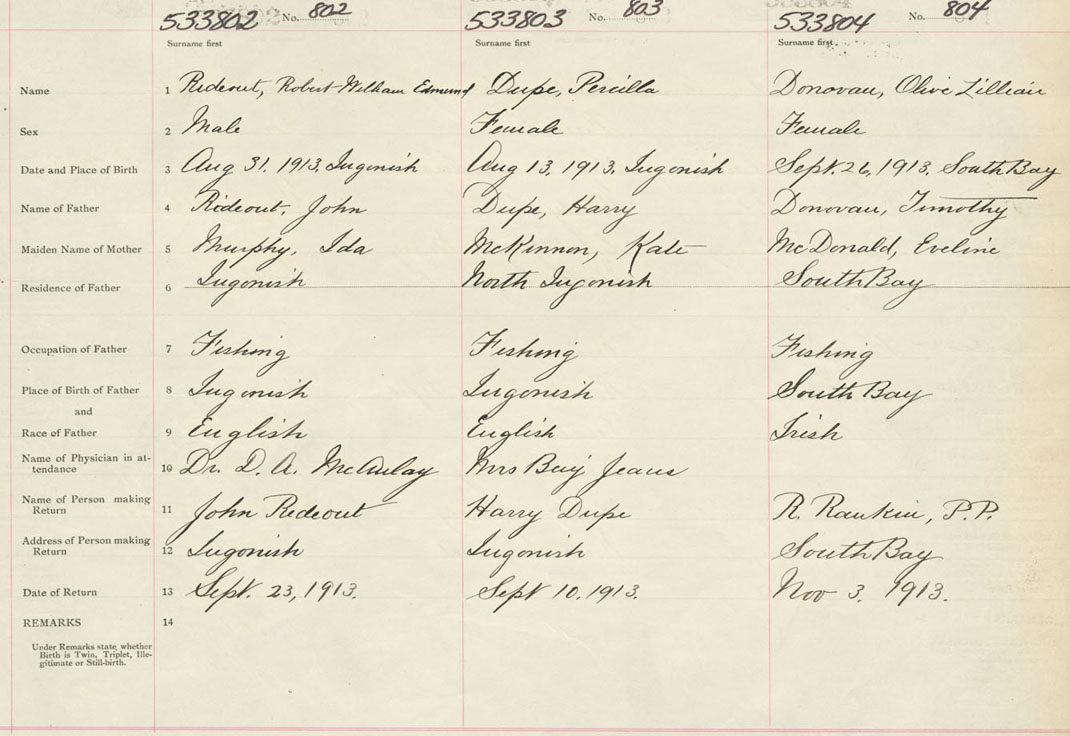 533802 No. 802 533803 No. 803 533804 No. 804
Surname first Surname first Surname first
Name 1 Rideout, Robert William Edmund Dupe, Percilla Donovan, Olive Lillian
Sex 2 Male Female Female
Date and Place of Birth 3 Aug 31. 1913. Ingonish Aug 13, 1913. Ingonish Sept. 26, 1913. South Bay
Name of Father 4 Rideout, John Dupe, Harry Donovan, Timothy
Maiden Name of Mother 5 Murphy, Ida McKinnon, Kate McDonald, Eveline
Residence of Father 6 Ingonish North Ingonish South Bay
Occupation of Father 7 Fishing Fishing Fishing
Place of Birth of Father 8 Ingonish Ingonish South Bay
and
Race of Father 9 English English Irish
Name of Physician in at-
tendance 10 Dr. D. A. McAulay Mrs Jeans
Name of Person making
Return 11 John Rideout Harry Dupe R. Rankin, P.P.
Address of Person making
Return 12 Ingonish Ingonish South Bay
Date of Return 13 Sept. 23, 1913. Sept 10, 1913. Nov 3. 1913.
REMARKS 14
Under Remarks state whether
Birth is Twin, Triplet, Ille-
gitimate or Still-birth.